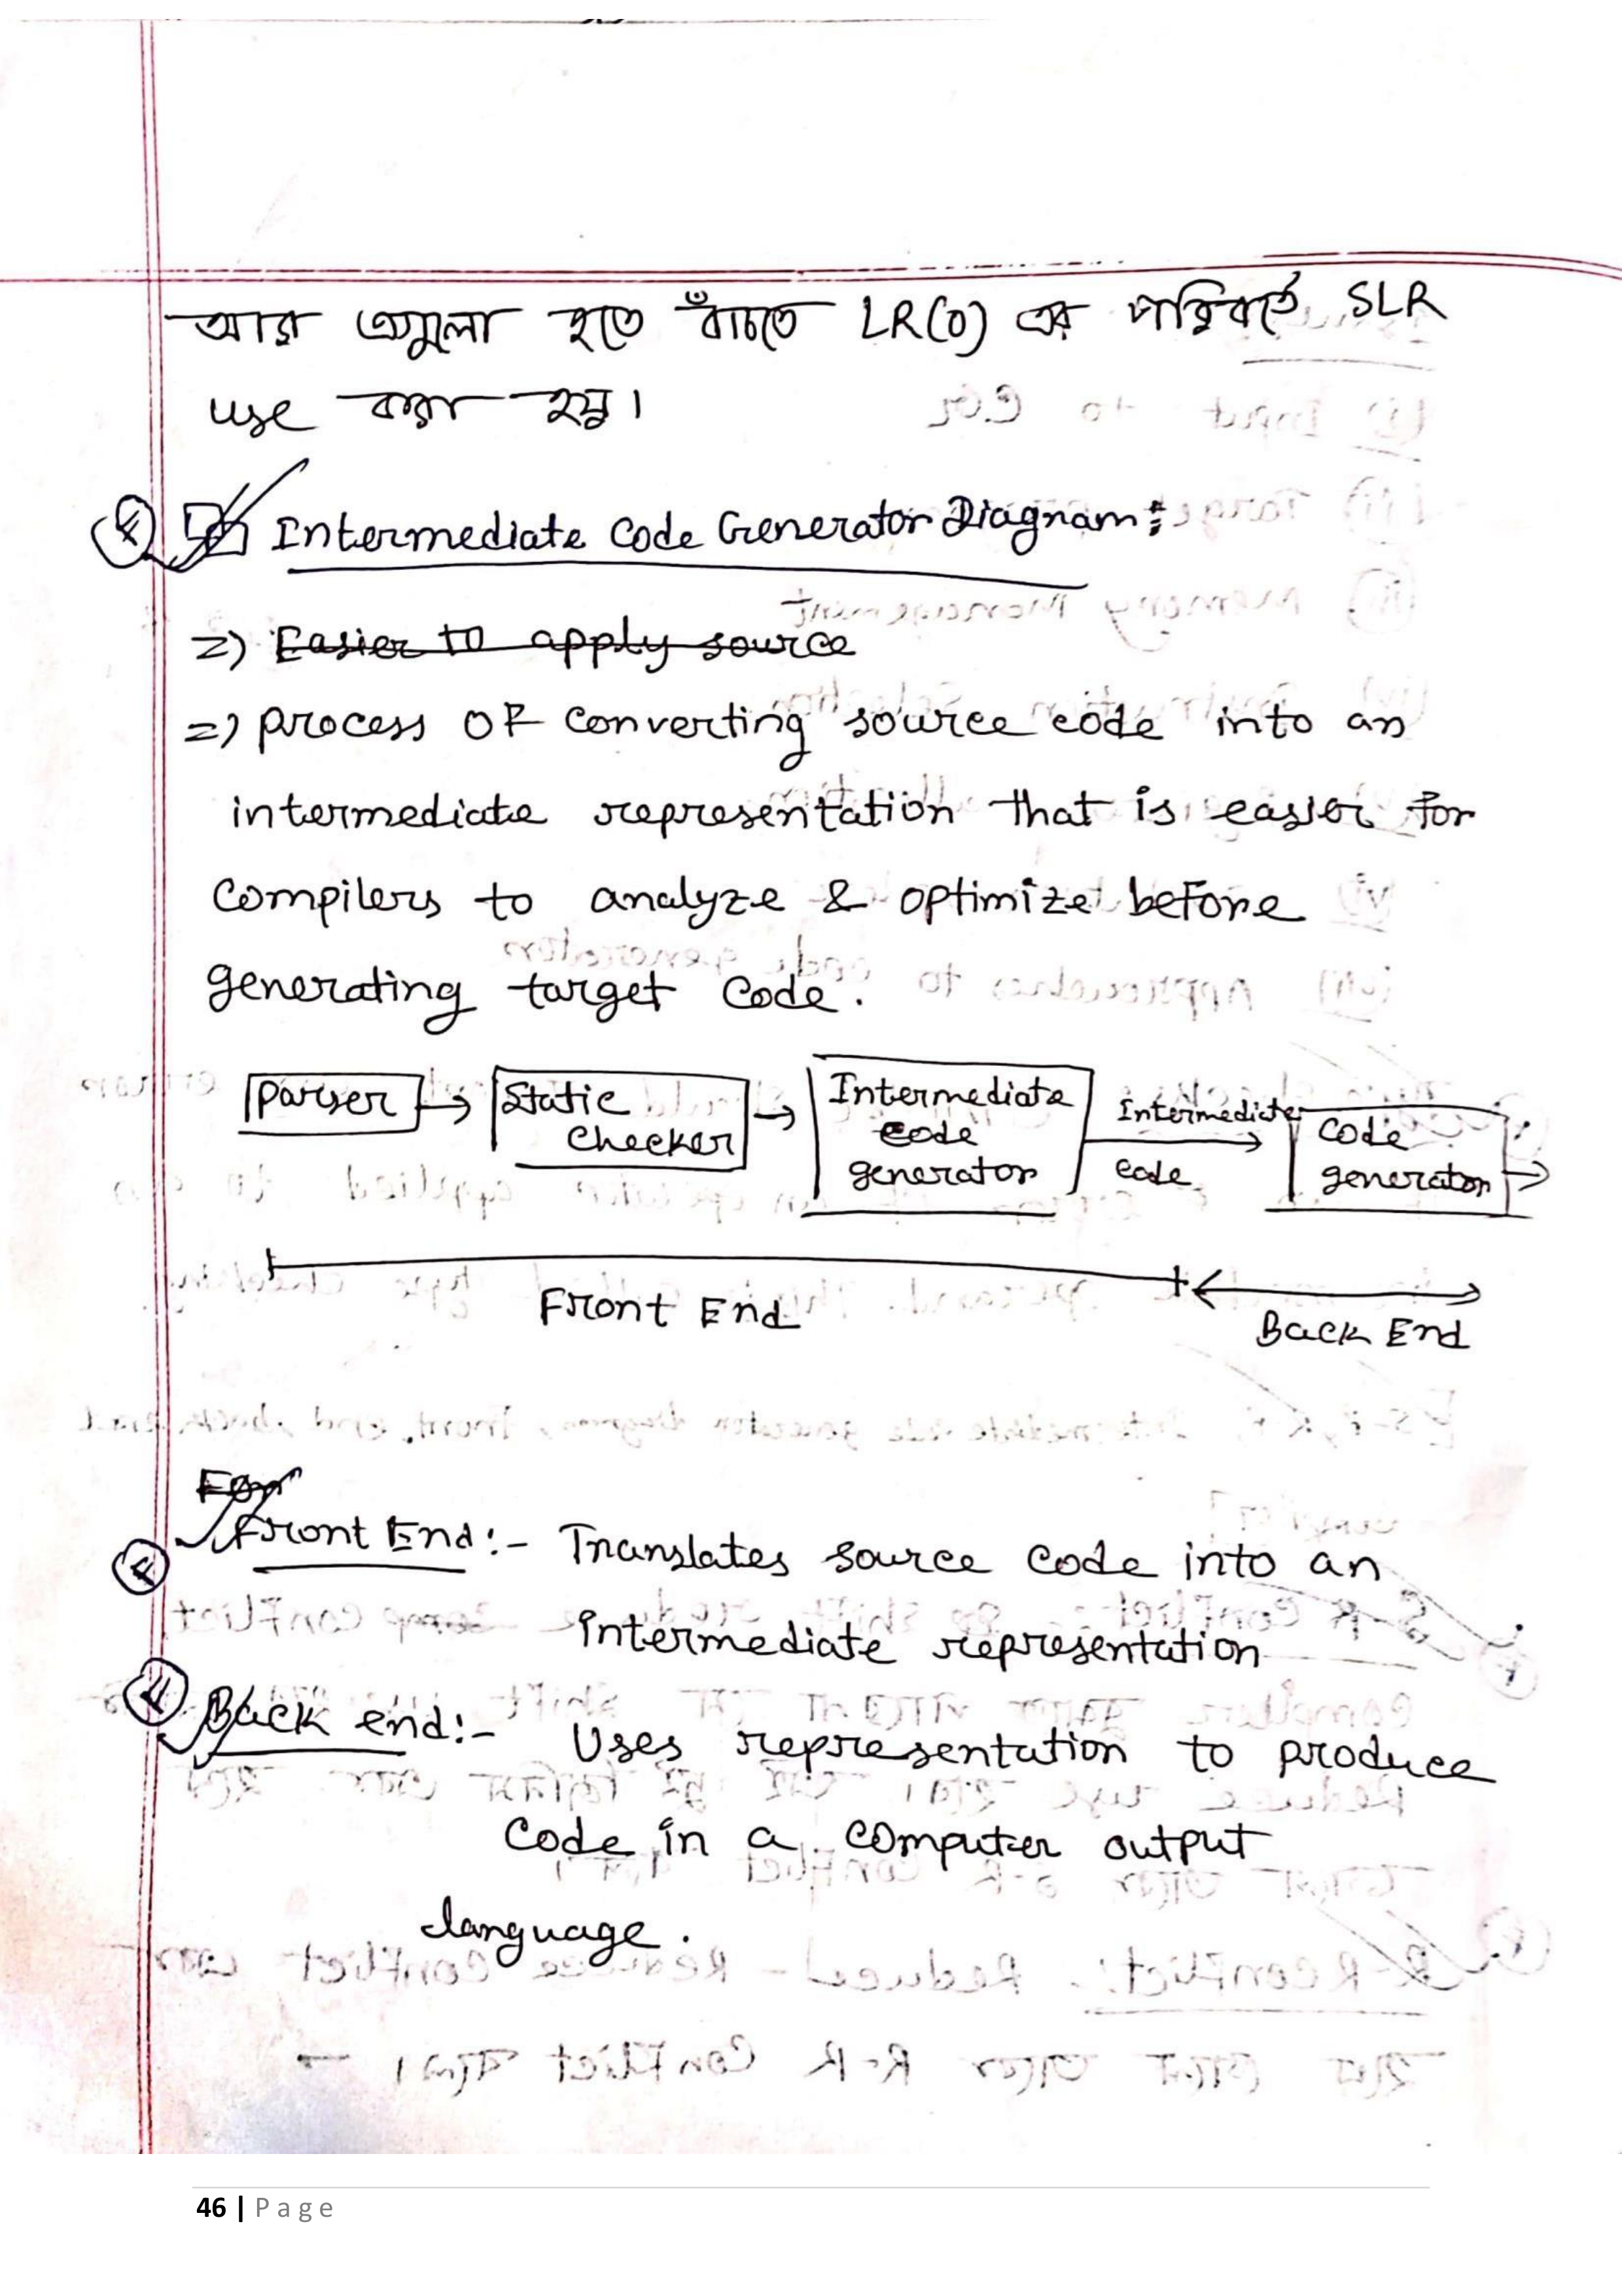 আর এগুলো হতে বাঁচতে LR(0) এর পরিবর্তে SLR
use করা হয়।
Intermediate Code Generator Diagram:
=) Easier to apply source
=) process OF converting source code into an
intermediate representation that is easier for
compilers to analyze & optimize before
generating target code.
Parser
Static
Checker
Intermediate
code
generator
Intermediate
code
Code
generator
Front End
Back End
For
Front End:- Translates source code into an
intermediate representation
Back end:- Uses representation to produce
code in a computer output
language.
46 | Page